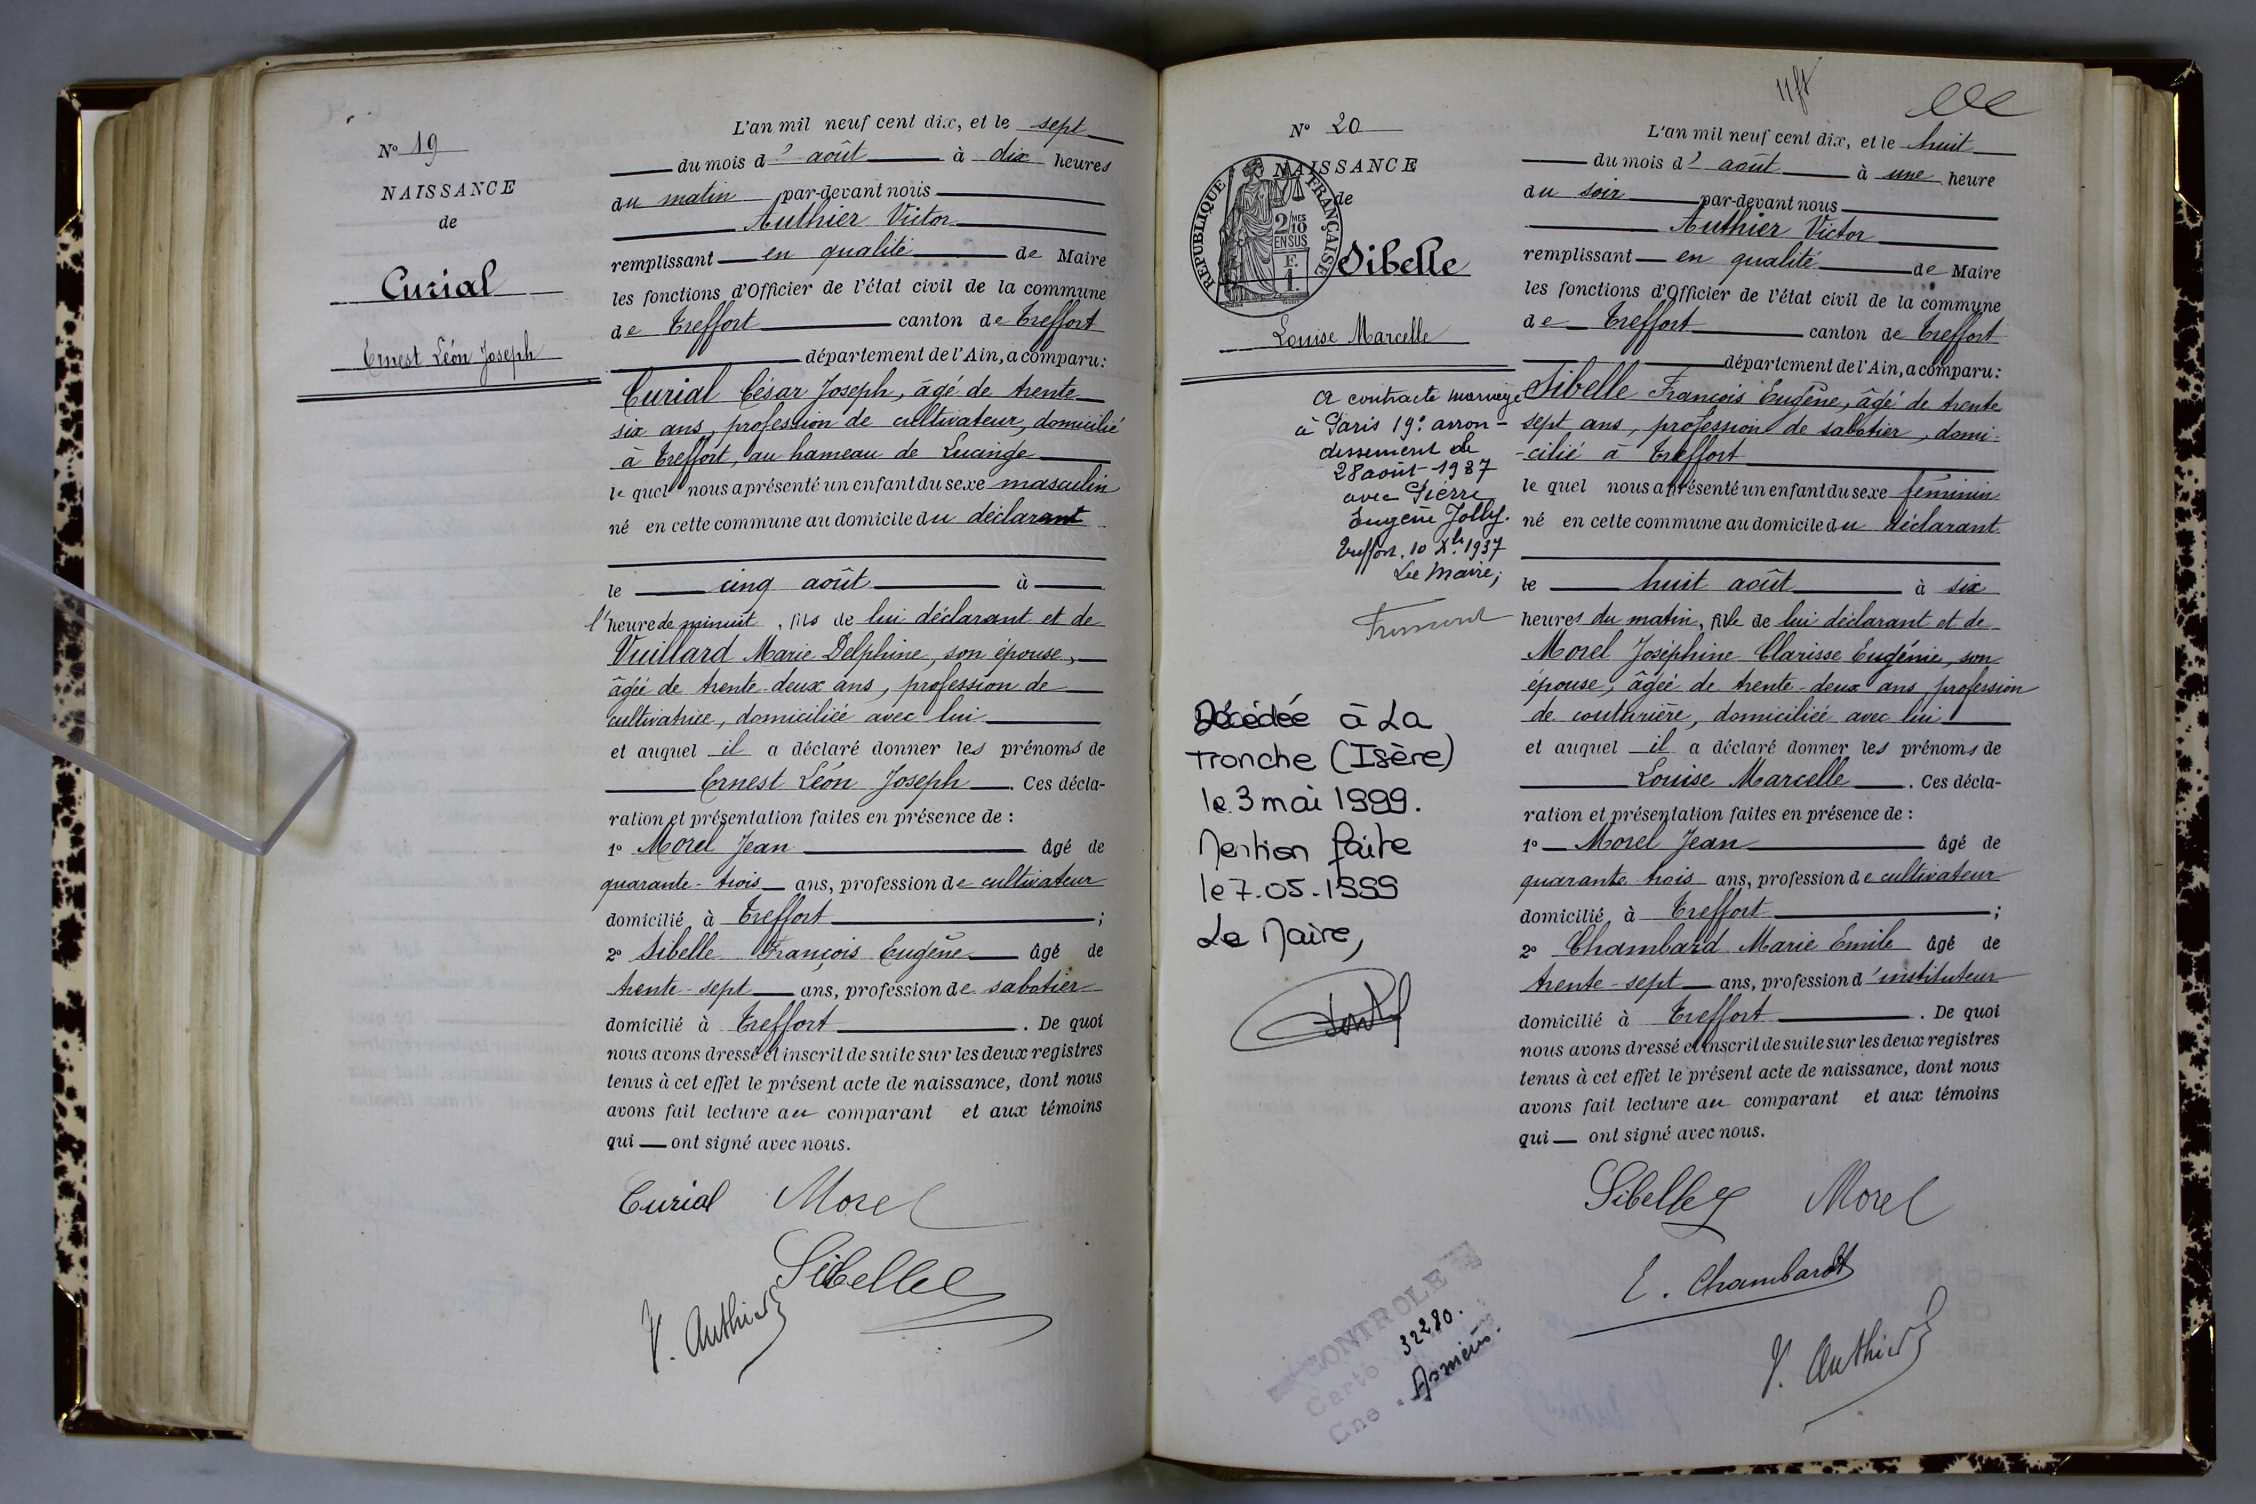 N° 19
NAISSANCE
de
Curial
Ernest Léon Joseph
L'an mil neuf cent dix, et le sept
du mois d' août à dix heures
du matin par-devant nous
Authier Victor
remplissant en qualité de Maire
les fonctions d'Officier de l'état civil de la commune
de Treffort canton de Treffort
département de l'Ain, a comparu:
Curial César Joseph, âgé de trente
six ans, profession de cultivateur, domicilié
à Treffort, au hameau de Lucinge
le quel nous a présenté un enfant du sexe masculin
né en cette commune au domicile du déclarant
le cinq août à
l'heure de minuit, fils de lui déclarant et de
Vuillard Marie Delphine, son épouse,
âgée de trente-deux ans, profession de
cultivatrice, domiciliée avec lui
et auquel il a déclaré donner les prénoms de
Ernest Léon Joseph. Ces décla-
ration et présentation faites en présence de :
1° Morel Jean âgé de
quarante-trois ans, profession de cultivateur
domicilié à Treffort ;
2° Sibelle François Eugène âgé de
trente-sept ans, profession de sabotier
domicilié à Treffort. De quoi
nous avons dressé et inscrit de suite sur les deux registres
tenus à cet effet le présent acte de naissance, dont nous
avons fait lecture au comparant et aux témoins
qui ont signé avec nous.
Curial Morel
Sibelle
V. Authier
N° 20
NAISSANCE
de
REPUBLIQUE FRANÇAISE
2/10 MES
EN SUS
F.
1.
Sibelle
Louise Marcelle
a contracté mariage
à Paris 19e arron-
dissement le
28 août 1937
avec Pierre
Eugène Jolly.
Treffort. 10 Xbre 1937
Le Maire,
Décédée à La
Tronche (Isère)
le 3 mai 1999.
Mention faite
le 7.05.1999
Le Maire,
CONTROLE
Carte 32280.
Cne Asnières.
L'an mil neuf cent dix, et le huit
du mois d' août à une heure
du soir par-devant nous
Authier Victor
remplissant en qualité de Maire
les fonctions d'Officier de l'état civil de la commune
de Treffort canton de Treffort
département de l'Ain, a comparu:
Sibelle François Eugène, âgé de trente
sept ans, profession de sabotier, domi-
-cilié à Treffort
le quel nous a présenté un enfant du sexe féminin
né en cette commune au domicile du déclarant
le huit août à six
heures du matin, fille de lui déclarant et de
Morel Joséphine Clarisse Eugénie, son
épouse, âgée de trente-deux ans, profession
de couturière, domiciliée avec lui
et auquel il a déclaré donner les prénoms de
Louise Marcelle. Ces décla-
ration et présentation faites en présence de :
1° Morel Jean âgé de
quarante trois ans, profession de cultivateur
domicilié à Treffort ;
2° Chambard Marie Emile âgé de
trente-sept ans, profession d'instituteur
domicilié à Treffort. De quoi
nous avons dressé et inscrit de suite sur les deux registres
tenus à cet effet le présent acte de naissance, dont nous
avons fait lecture au comparant et aux témoins
qui ont signé avec nous.
Sibelle Morel
E. Chambard
V. Authier